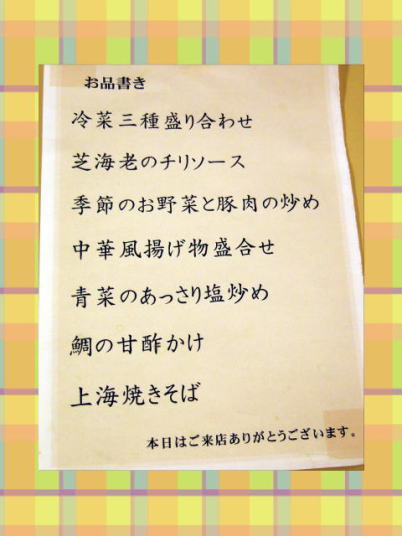 お品書き
冷菜三種盛り合わせ
芝海老のチリソース
季節のお野菜と豚肉の炒め
中華風揚げ物盛合せ
青菜のあっさり塩炒め
鯛の甘酢かけ
上海焼きそば
本日はご来店ありがとうございます。